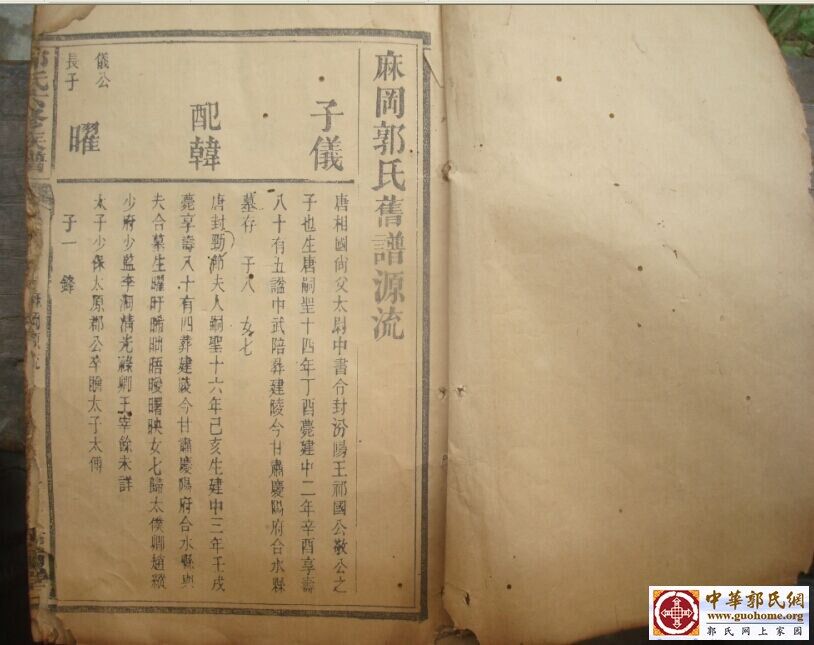 麻岡郭氏舊譜源流
子儀
唐相國尚父太尉中書令封汾陽王祁國公敬公之
子也生唐嗣聖十四年丁酉薨建中二年辛酉享壽
八十有五謚中武陪葬建陵今甘肅慶陽府合水縣
墓存 子八 女七
配韓
唐封勁節夫人嗣聖十六年己亥生建中三年壬戌
薨享壽八十有四葬建陵今甘肅慶陽府合水縣與
夫合墓生曜旴晞昢晤曖曙映女七歸太僕卿趙縱
少府少監李洞清光祿卿王宰餘未詳
儀公
長子
曜
太子少保太原郡公卒贈太子太傅
子一 鋒
郭氏
族譜
麻岡源流
中華郭氏網
www.guohome.org
郭氏网上家园